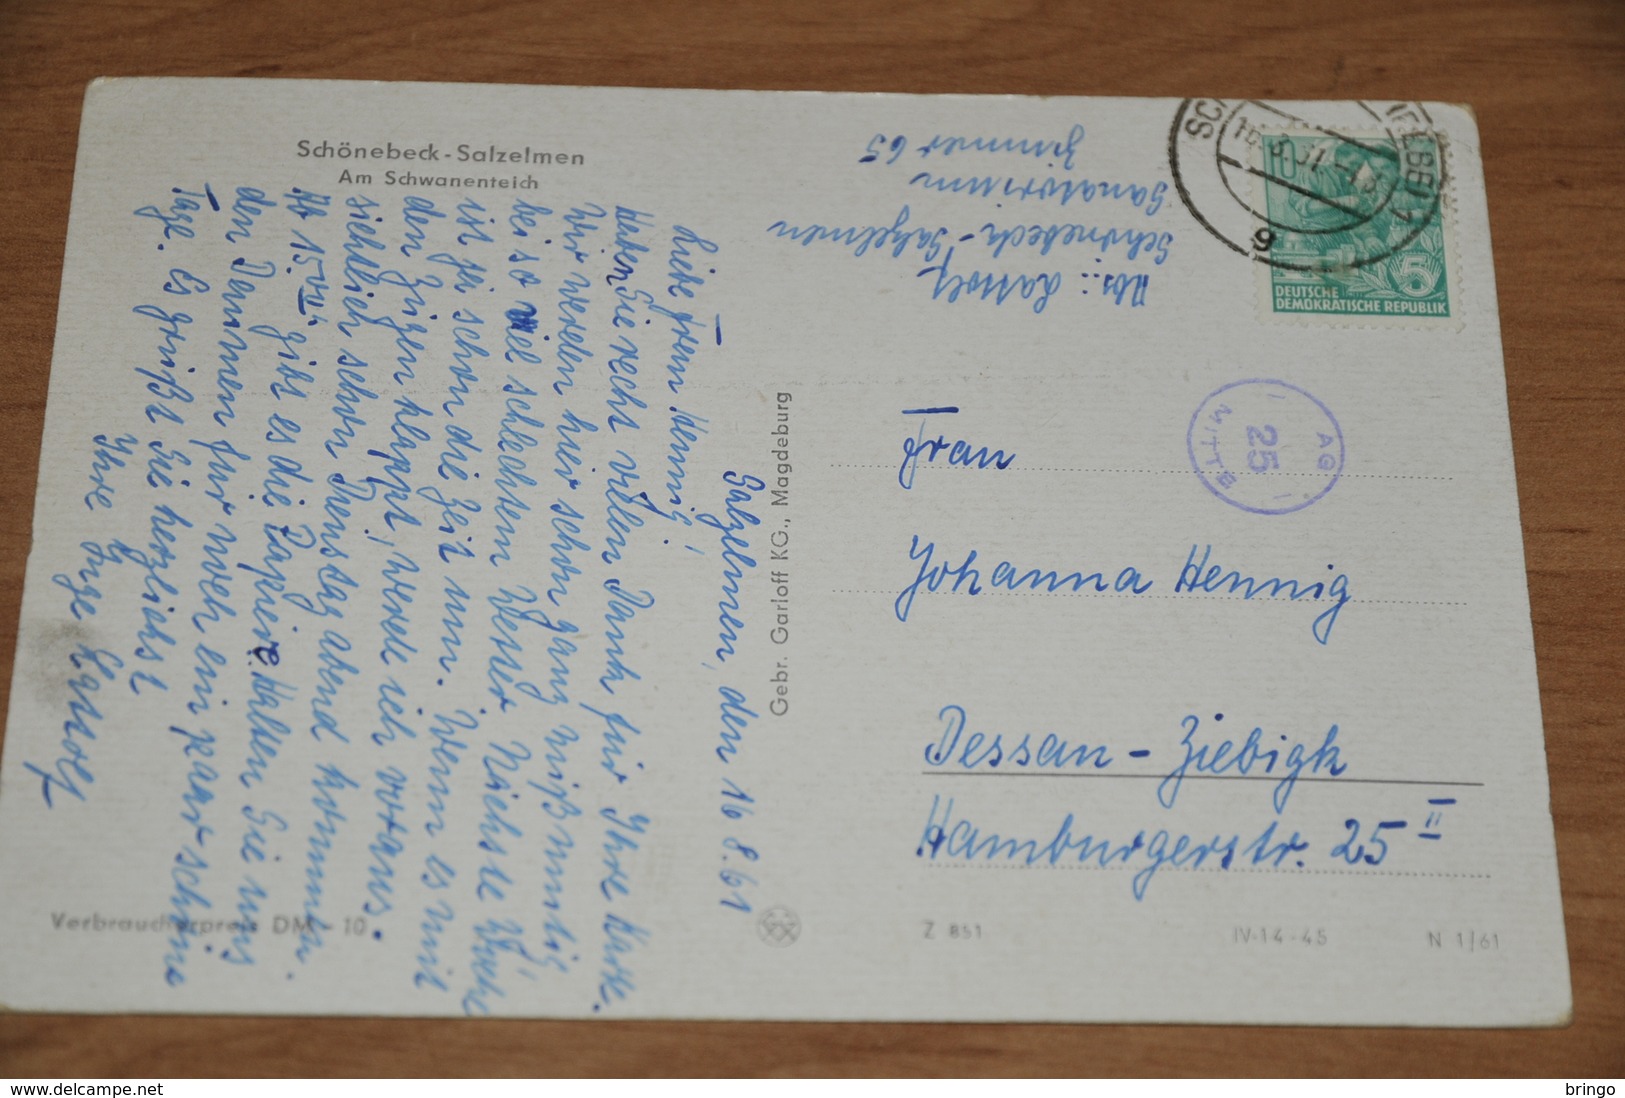 Schönebeck-Salzelmen
Am Schwanenteich
Salzelmen, den 16.8.61
Liebe Frau Hennig!
Haben Sie recht vielen Dank für Ihre Karte.
Wir werden hier schon ganz mißmutig,
bei so viel schlechtem Wetter. Nächste Woche
ist ja schon die Zeit um. Wenn es mit
den Zügen klappt, werde ich voraus-
sichtlich schon Dienstag abend kommen.
Ab 15 gibt es die Papiere. Halten Sie uns
den Daumen für noch ein paar schöne
Tage. Es grüßt Sie herzlichst
Ihre Inge
Verbraucherpreis DM -.10
Gebr. Garloff KG., Magdeburg
Abs.:
Schönebeck-Salzelmen
Sanatorium
Zimmer 65
10
5
DEUTSCHE
DEMOKRATISCHE REPUBLIK
g
AG
25
MITTB
Frau
Johanna Hennig
Dessau-Ziebigk
Hamburgerstr. 25 II
Z 851
IV-14-45
N 1/61
delcampe.net
bringo